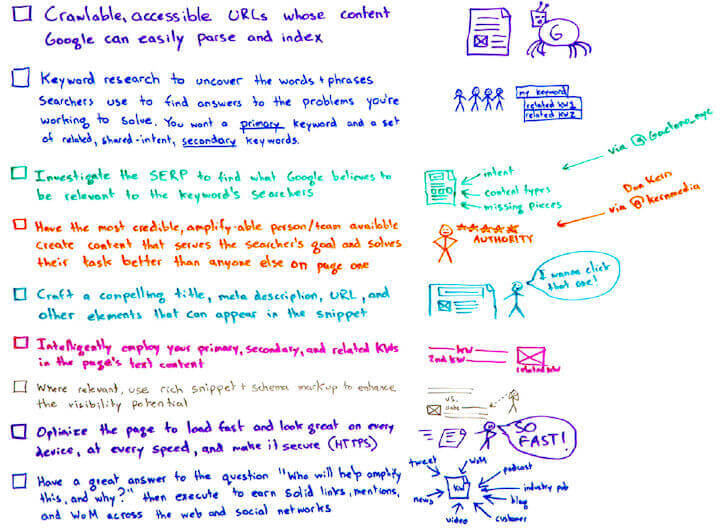 Crawlable, accessible URLs whose content
Google can easily parse and index
G
Keyword research to uncover the words + phrases
searchers use to find answers to the problems you're
working to solve. You want a primary keyword and a set
of related, shared-intent, secondary keywords.
my keyword
related KW1
related KW2
Investigate the SERP to find what Google believes to
be relevant to the keyword's searchers
intent
content types
missing pieces
via @gaetano_nyc
Have the most credible, amplify-able person/team available
create content that serves the searcher's goal and solves
their task better than anyone else on page one
AUTHORITY
Dan Kern
via @kernmedia
Craft a compelling title, meta description, URL, and
other elements that can appear in the snippet
I wanna click
that one!
Intelligently employ your primary, secondary, and related KWs
in the page's text content
KW
2nd KW
related KW
Where relevant, use rich snippet + schema markup to enhance
the visibility potential
vs.
Optimize the page to load fast and look great on every
device, at every speed, and make it secure (HTTPS)
SO
FAST!
Have a great answer to the question "Who will help amplify
this, and why?" then execute to earn solid links, mentions,
and WoM across the web and social networks
tweet
WoM
podcast
KW
industry pub
news
blog
video
customer